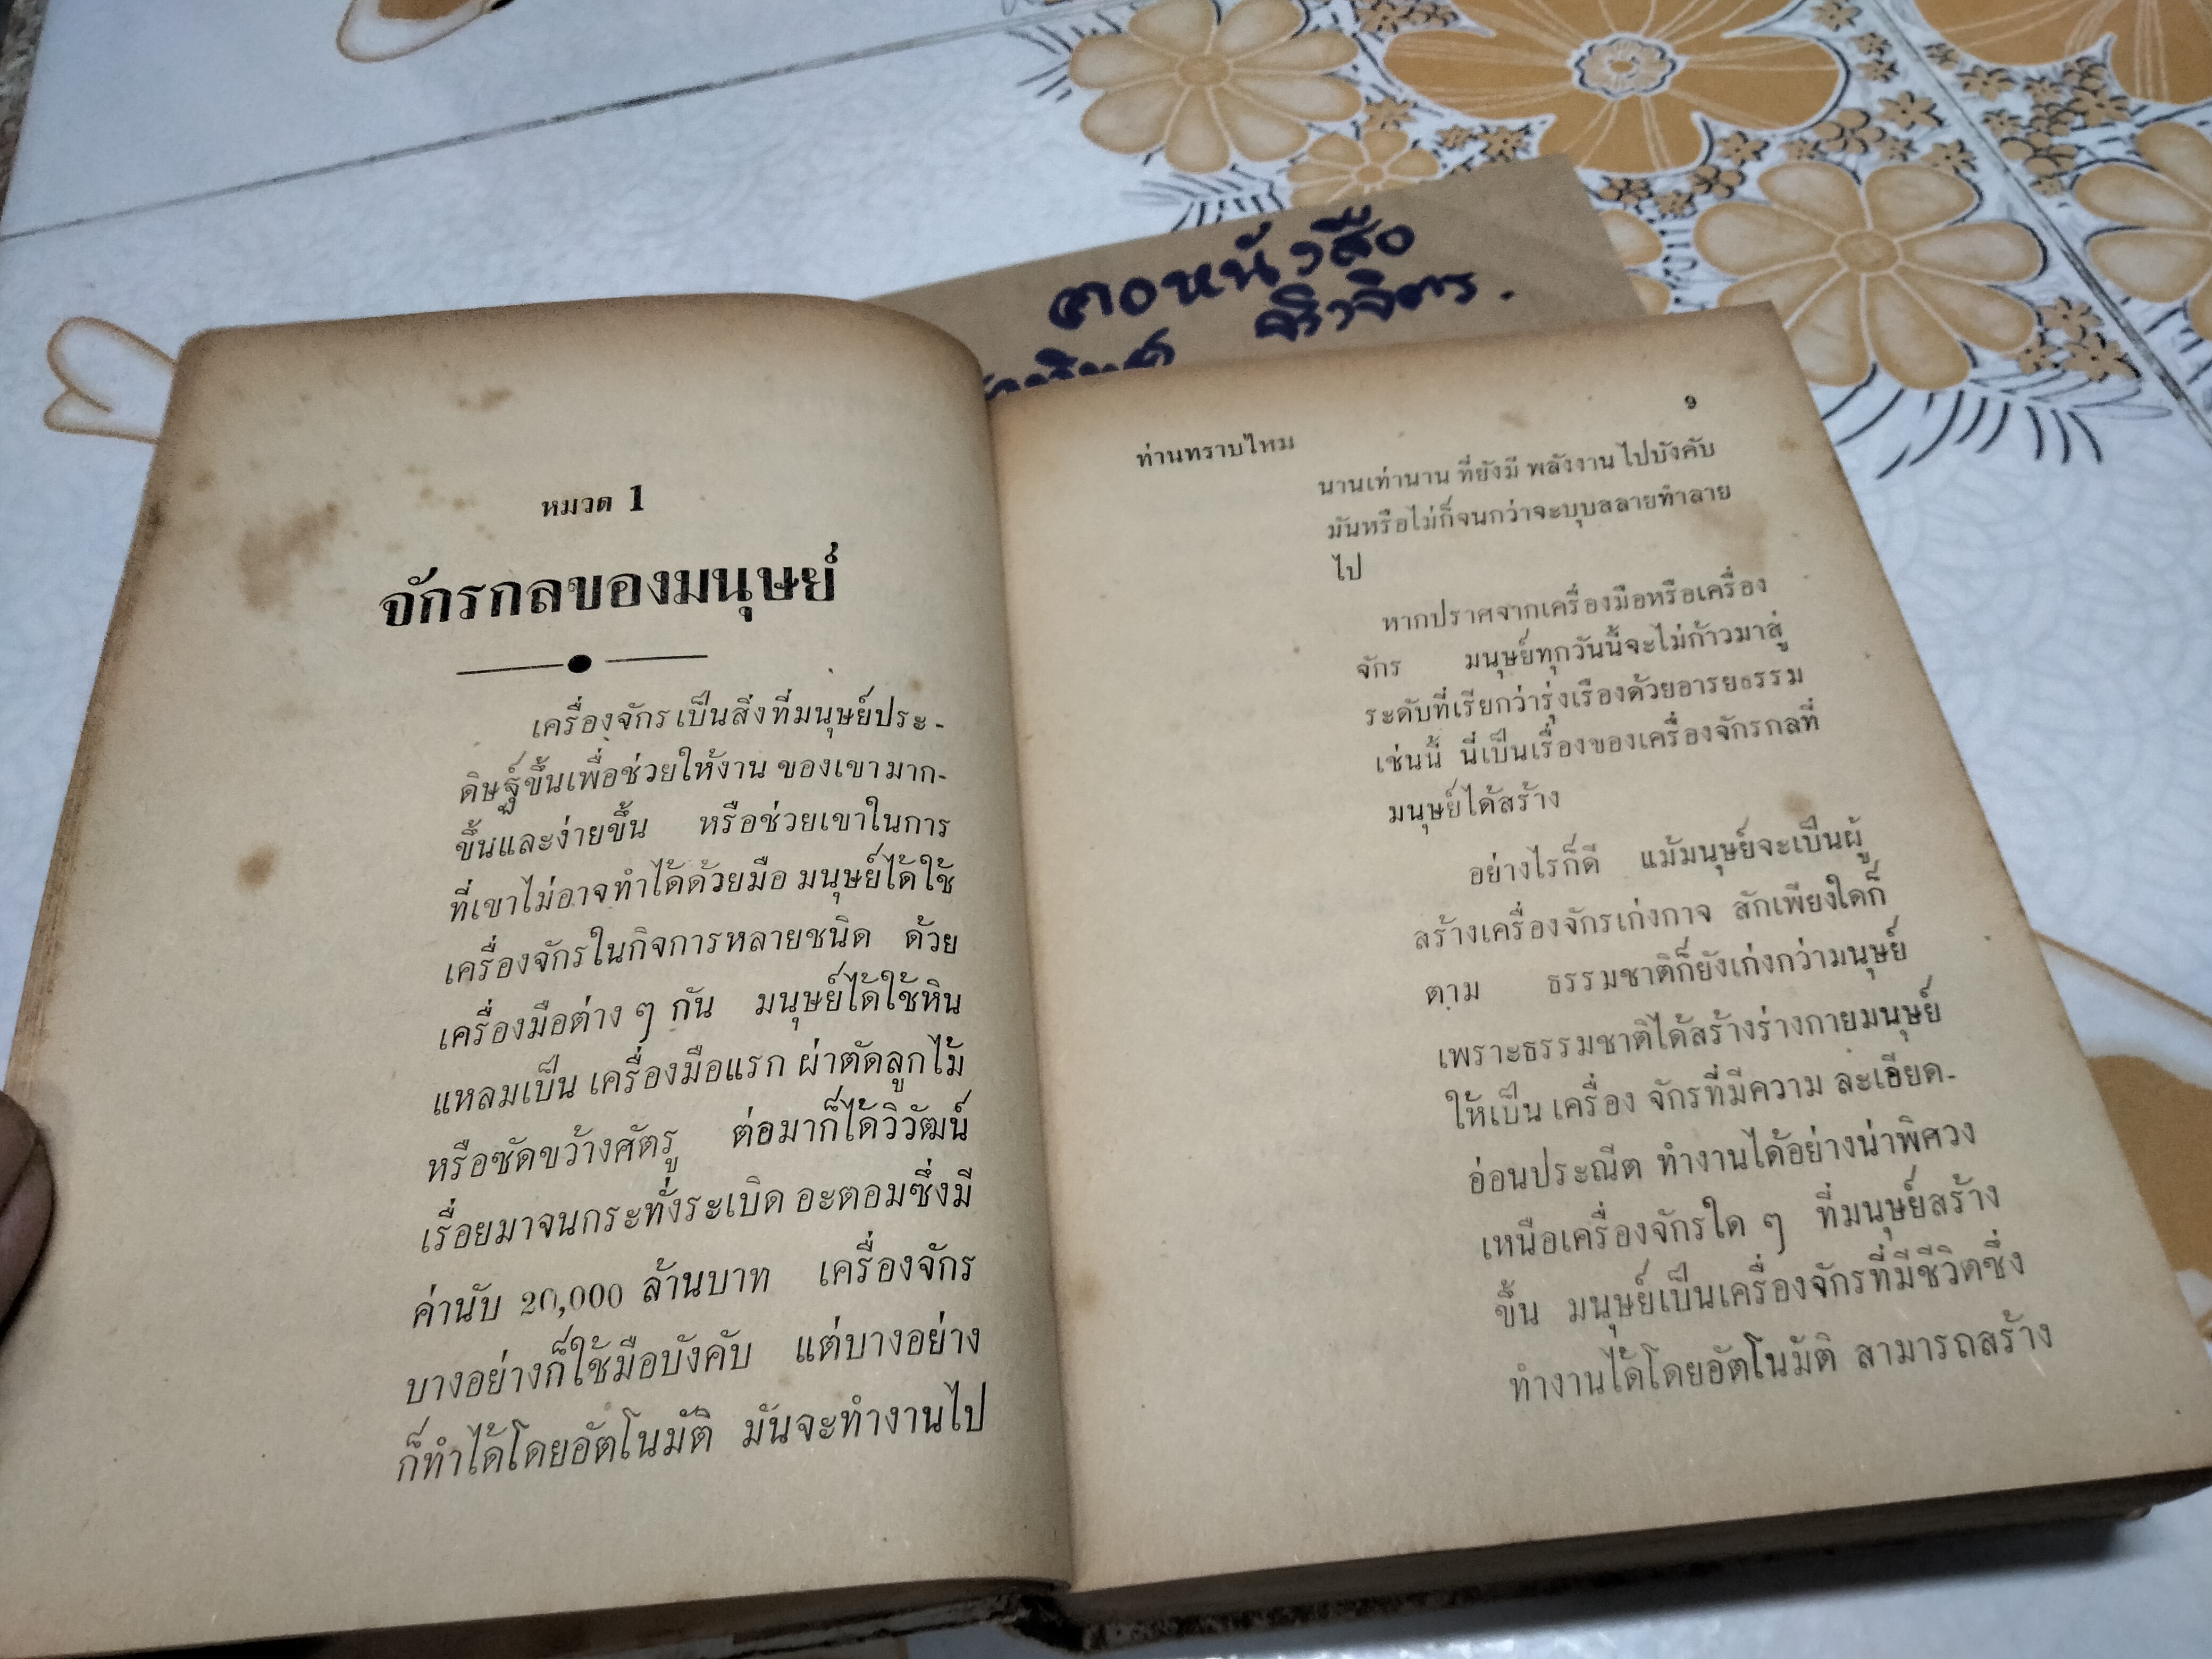 คอหนังสือ
หมวด 1
จักรกลของมนุษย์
เครื่องจักร เป็นสิ่งที่มนุษย์ประ-
ดิษฐ์ขึ้นเพื่อช่วยให้งาน ของเขามาก-
ขึ้นและง่ายขึ้น หรือช่วยเขาในการ
ที่เขาไม่อาจทำได้ด้วยมือ มนุษย์ได้ใช้
เครื่องจักรในกิจการหลายชนิด ด้วย
เครื่องมือต่าง ๆ กัน มนุษย์ได้ใช้หิน
แหลมเป็น เครื่องมือแรก ผ่าตัดลูกไม้
หรือซัดขว้างศัตรู ต่อมาก็ได้วิวัฒน์
เรื่อยมาจนกระทั่งระเบิด อะตอมซึ่งมี
ค่านับ 20,000 ล้านบาท เครื่องจักร
บางอย่างก็ใช้มือบังคับ แต่บางอย่าง
ก็ทำได้โดยอัตโนมัติ มันจะทำงานไป
ท่านทราบไหม
9
นานเท่านาน ที่ยังมี พลังงาน ไปบังคับ
มันหรือไม่ก็จนกว่าจะบุบสลายทำลาย
ไป
หากปราศจากเครื่องมือหรือเครื่อง
จักร มนุษย์ทุกวันนี้จะไม่ก้าวมาสู่
ระดับที่เรียกว่ารุ่งเรืองด้วยอารยธรรม
เช่นนี้ นี่เป็นเรื่องของเครื่องจักรกลที่
มนุษย์ได้สร้าง
อย่างไรก็ดี แม้มนุษย์จะเป็นผู้
สร้างเครื่องจักรเก่งกาจ สักเพียงใดก็
ตาม ธรรมชาติก็ยังเก่งกว่ามนุษย์
เพราะธรรมชาติได้สร้างร่างกายมนุษย์
ให้เป็น เครื่อง จักรที่มีความ ละเอียด-
อ่อนประณีต ทำงานได้อย่างน่าพิศวง
เหนือเครื่องจักรใด ๆ ที่มนุษย์สร้าง
ขึ้น มนุษย์เป็นเครื่องจักรที่มีชีวิตซึ่ง
ทำงานได้โดยอัตโนมัติ สามารถสร้าง